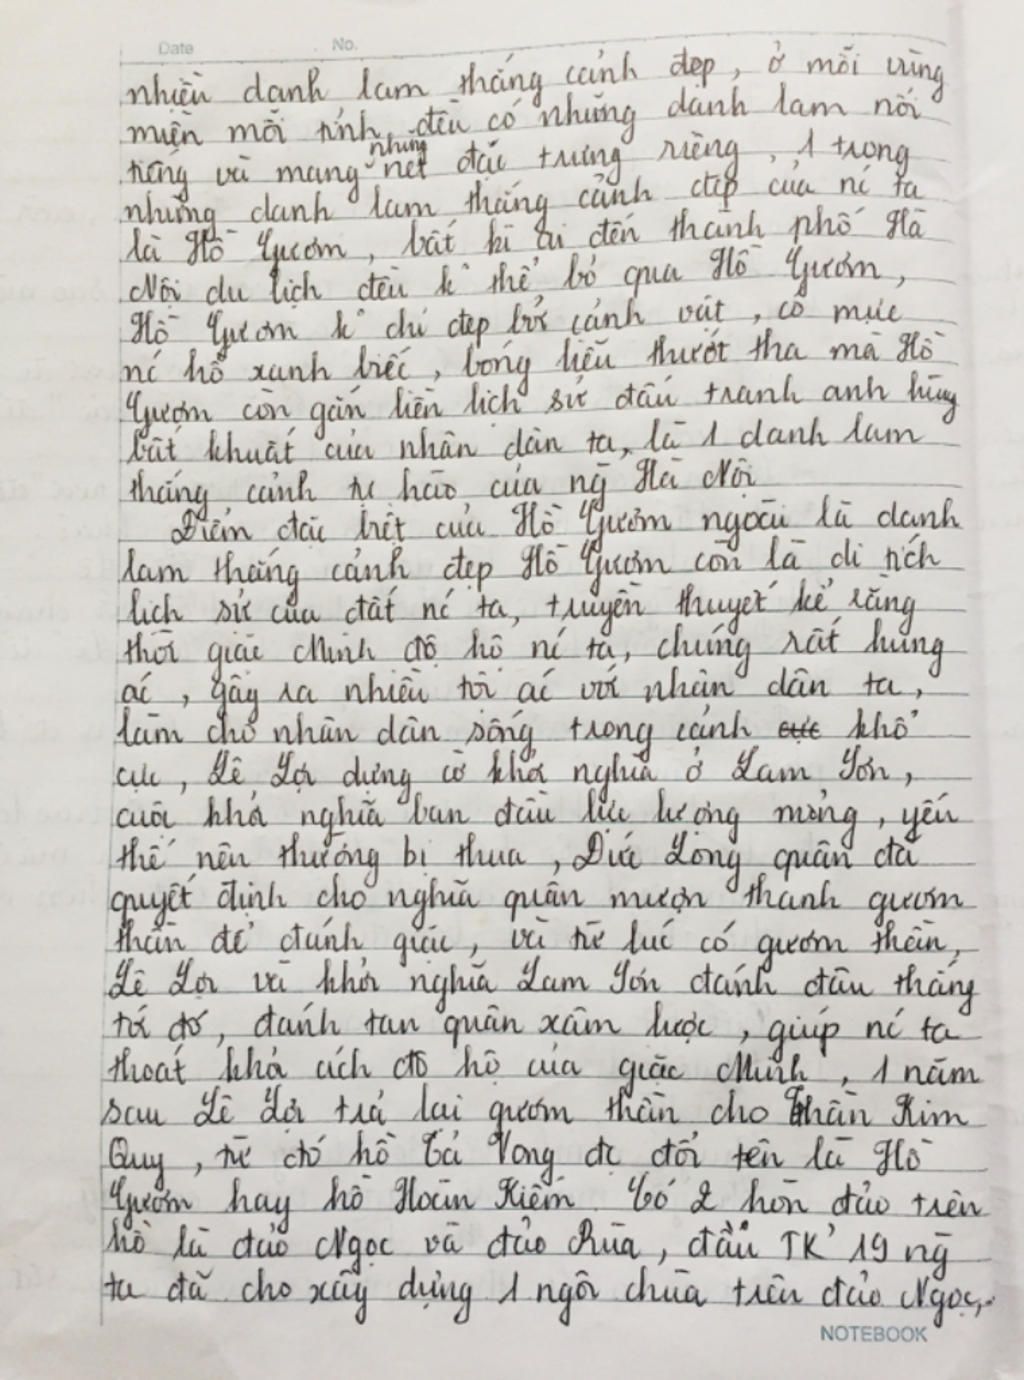 Date No.
nhiều danh lam thắng cảnh đẹp, ở mỗi vùng
miền mỗi tỉnh đều có những danh lam nổi
tiếng và mang những nét đặc trưng riêng, 1 trong
những danh lam thắng cảnh đẹp của nc ta
là Hồ Gươm, bất kì ai đến thành phố Hà
Nội du lịch đều k thể bỏ qua Hồ Gươm,
Hồ Gươm k chỉ đẹp bởi cảnh vật, có mực
nc hồ xanh biếc, bóng liễu thướt tha mà Hồ
Gươm còn gắn liền lịch sử đấu tranh anh hùng
bất khuất của nhân dân ta, là 1 danh lam
thắng cảnh tự hào của ng Hà Nội
Điểm đặc biệt của Hồ Gươm ngoài là danh
lam thắng cảnh đẹp Hồ Gươm còn là di tích
lịch sử của đất nc ta, truyền thuyết kể rằng
thời giặc Minh đô hộ nc ta, chúng rất hung
ác, gây ra nhiều tội ác với nhân dân ta,
làm cho nhân dân sống trong cảnh cực khổ
cực, Lê Lợi dựng cờ khởi nghĩa ở Lam Sơn,
cuộc khởi nghĩa ban đầu lực lượng mỏng, yếu
thế nên thường bị thua, Đức Long quân đã
quyết định cho nghĩa quân mượn thanh gươm
thần để đánh giặc, và từ lúc có gươm thần,
Lê Lợi và khởi nghĩa Lam Sơn đánh đâu thắng
tới đó, đánh tan quân xâm lược, giúp nc ta
thoát khỏi ách đô hộ của giặc Minh, 1 năm
sau Lê Lợi trả lại gươm thần cho Thần Kim
Quy, từ đó hồ Tả Vọng đc đổi tên là Hồ
Gươm hay hồ Hoàn Kiếm. Có 2 hòn đảo trên
hồ là đảo Ngọc và đảo Rùa, đầu TK 19 ng
ta đã cho xây dựng 1 ngôi chùa trên đảo Ngọc,
NOTEBOOK